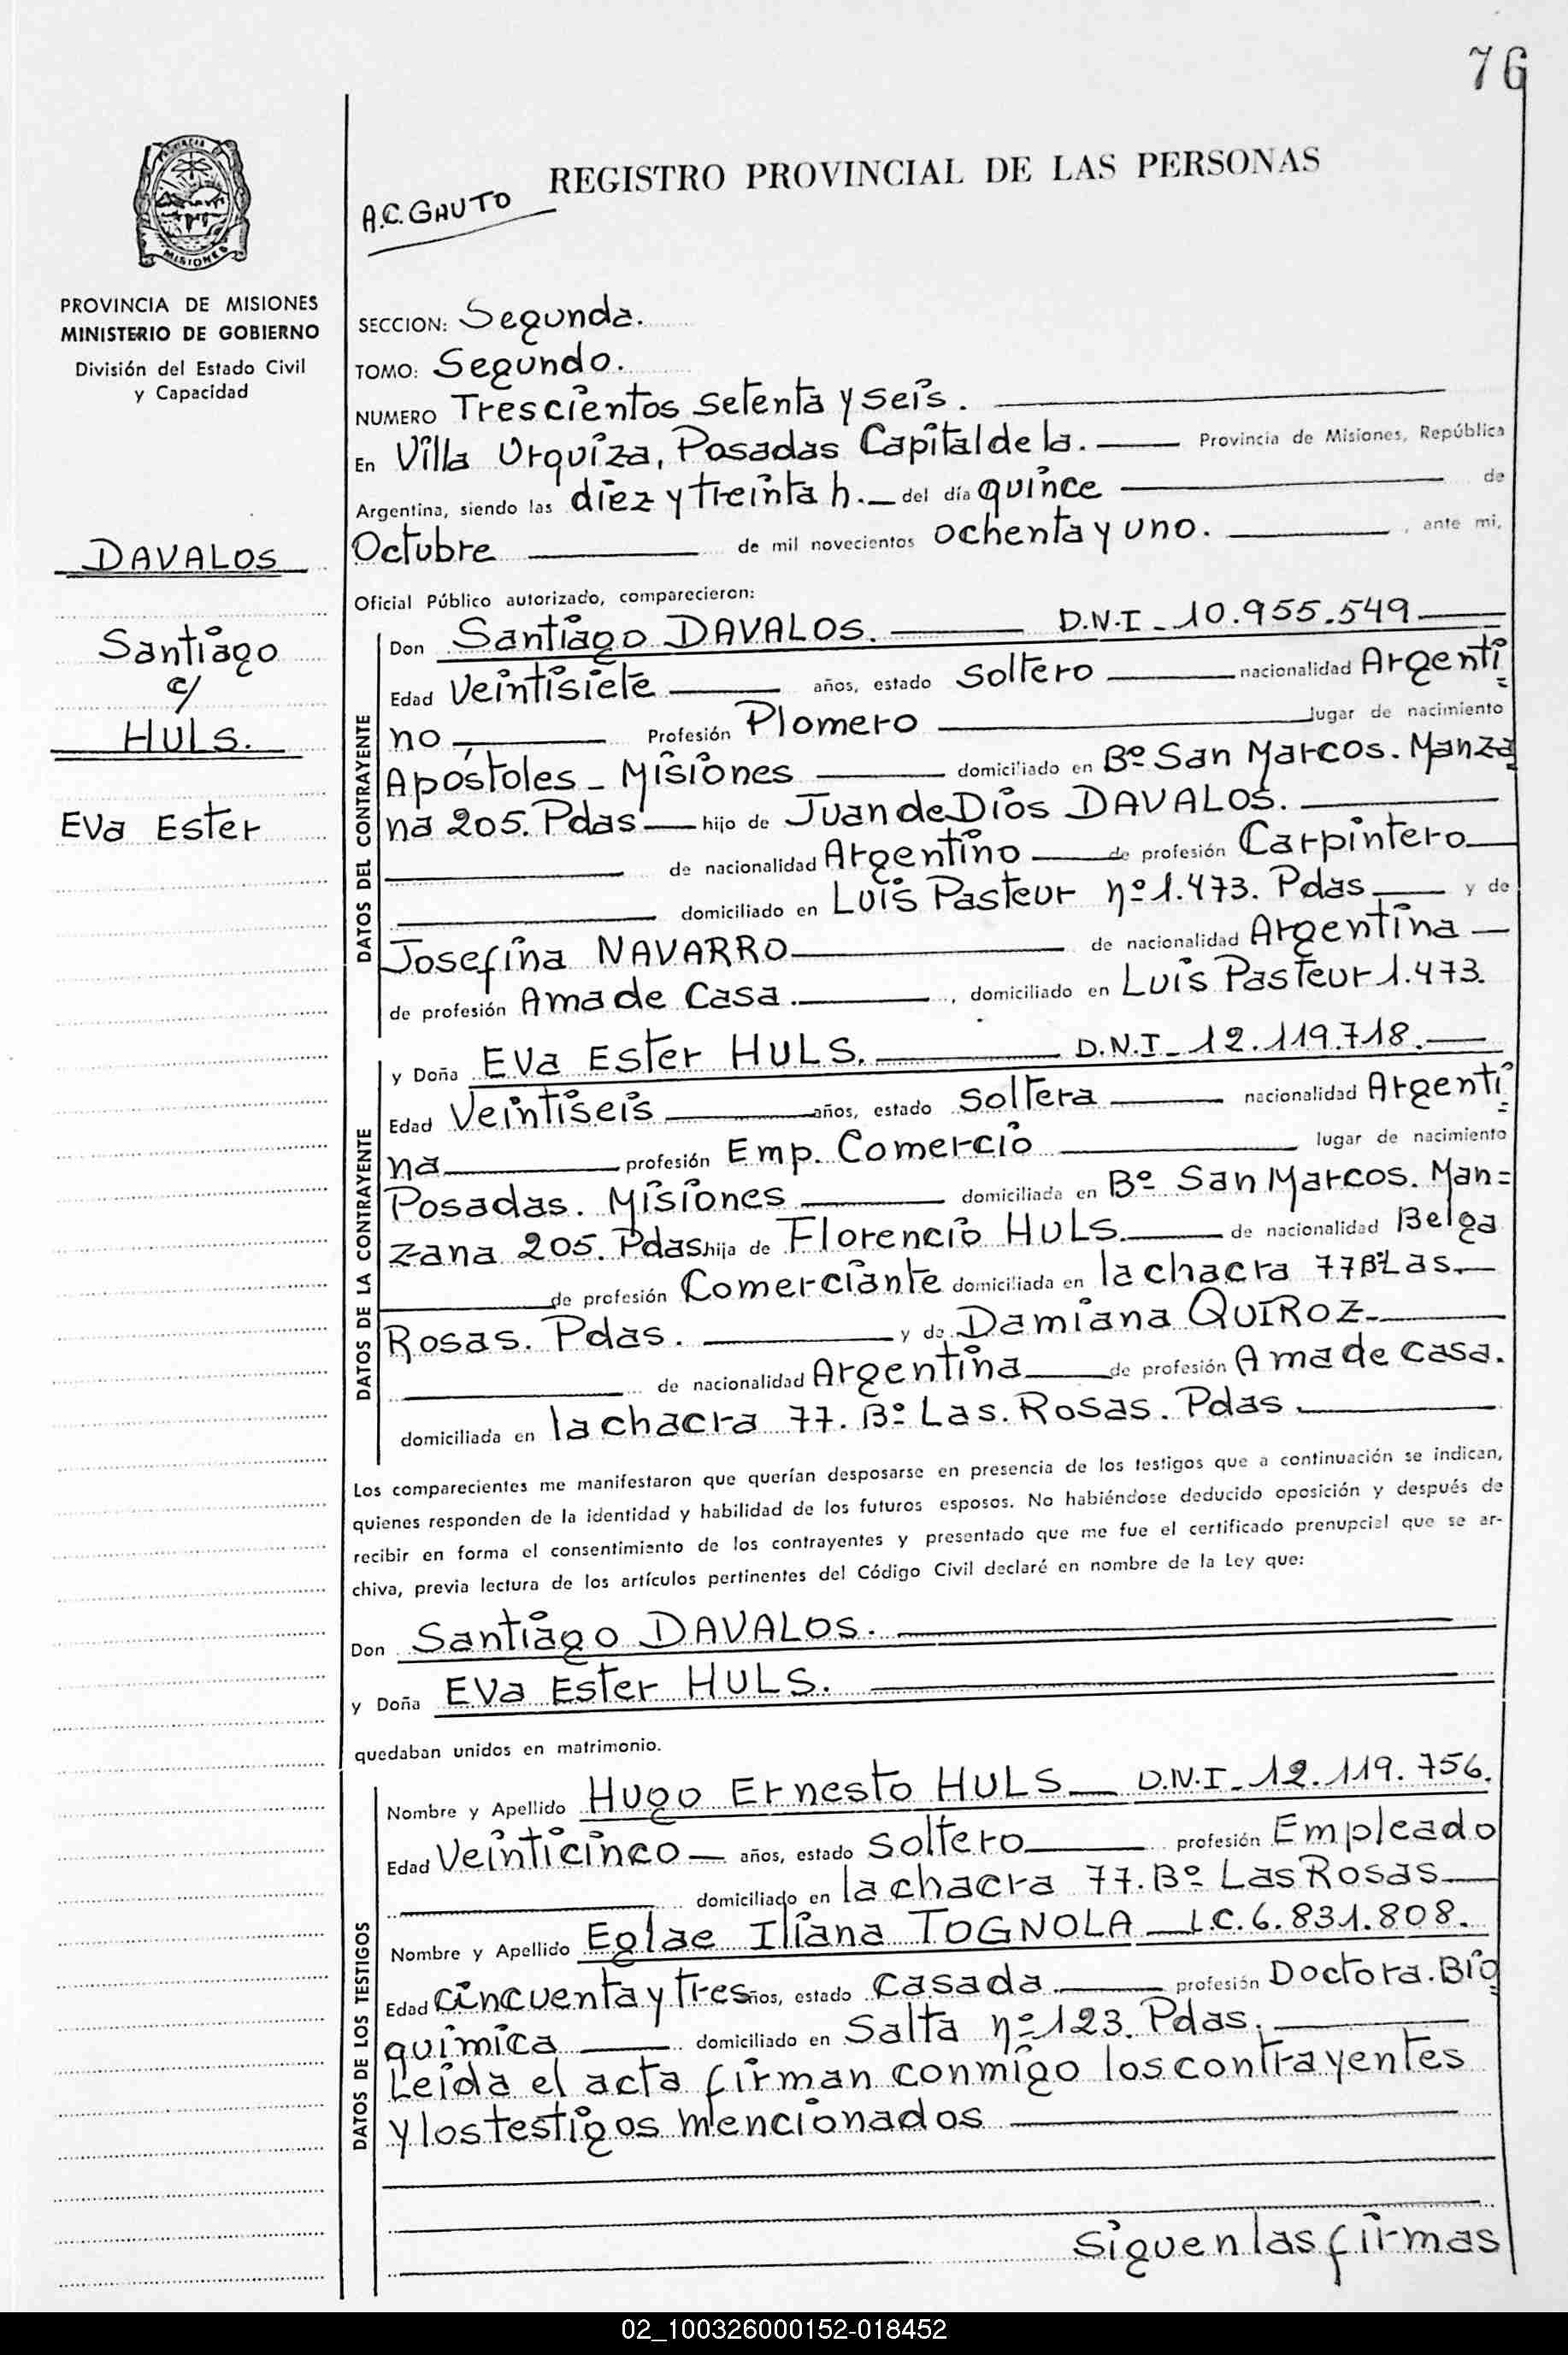 76
REGISTRO PROVINCIAL DE LAS PERSONAS
A.C. GAUTO
PROVINCIA DE MISIONES
MINISTERIO DE GOBIERNO
División del Estado Civil
y Capacidad
DAVALOS
Santiago
c/
HULS.
Eva Ester
SECCION: Segunda.
TOMO: Segundo.
NUMERO Trescientos setenta y seis.
En Villa Urquiza, Posadas Capital de la. Provincia de Misiones, República
Argentina, siendo las diez y treinta h. del día quince de
Octubre de mil novecientos ochenta y uno. , ante mi,
Oficial Público autorizado, comparecieron:
DATOS DEL CONTRAYENTE
Don Santiago DAVALOS. D.N.I - 10.955.549
Edad Veintisiete años, estado Soltero nacionalidad Argenti=
no, Profesión Plomero lugar de nacimiento
Apóstoles - Misiones domiciliado en Bº San Marcos. Manza
na 205. Pdas hijo de Juan de Dios DAVALOS.
de nacionalidad Argentino de profesión Carpintero
domiciliado en Luis Pasteur nº 1.473. Pdas y de
Josefina NAVARRO de nacionalidad Argentina
de profesión Ama de Casa. , domiciliado en Luis Pasteur 1.473.
DATOS DE LA CONTRAYENTE
y Doña Eva Ester HULS. D.N.I - 12.119.718.
Edad Veintiseis años, estado Soltera nacionalidad Argenti=
na profesión Emp. Comercio lugar de nacimiento
Posadas. Misiones domiciliada en Bº San Marcos. Man=
zana 205. Pdas hija de Florencio HULS. de nacionalidad Belga
de profesión Comerciante domiciliada en la chacra 77 Bº Las.
Rosas. Pdas. y de Damiana QUIROZ-
de nacionalidad Argentina de profesión Ama de casa.
domiciliada en la chacra 77. Bº Las. Rosas. Pdas.
Los comparecientes me manifestaron que querían desposarse en presencia de los testigos que a continuación se indican,
quienes responden de la identidad y habilidad de los futuros esposos. No habiéndose deducido oposición y después de
recibir en forma el consentimiento de los contrayentes y presentado que me fue el certificado prenupcial que se ar-
chiva, previa lectura de los artículos pertinentes del Código Civil declaré en nombre de la Ley que:
Don Santiago DAVALOS.
y Doña Eva Ester HULS.
quedaban unidos en matrimonio.
DATOS DE LOS TESTIGOS
Nombre y Apellido Hugo Ernesto HULS D.N.I - 12.119.756.
Edad Veinticinco años, estado Soltero profesión Empleado
domiciliado en la chacra 77. Bº Las Rosas
Nombre y Apellido Eglae Iliana TOGNOLA L.C. 6.831.808.
Edad Cincuenta y tres años, estado Casada profesión Doctora. Bio
química domiciliado en Salta nº 123. Pdas.
Leída el acta firman conmigo los contrayentes
y los testigos mencionados
Siguen las firmas
02_100326000152-018452